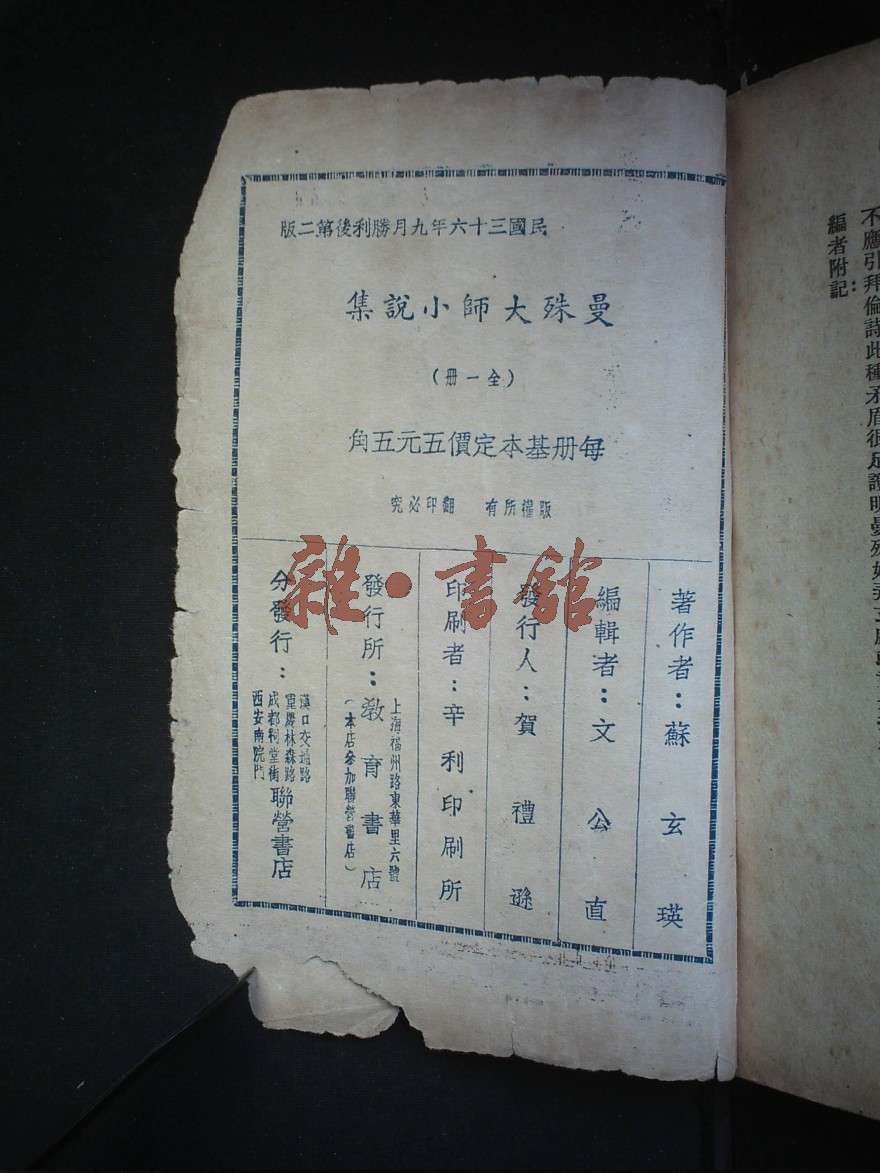 不應引拜倫詩此種矛盾很足證明曼殊
編者附記：
民國三十六年九月勝利後第二版
曼殊大師小說集
（全一册）
每册基本定價五元五角
版權所有　翻印必究
著作者：蘇玄瑛
編輯者：文公直
發行人：賀禮遜
印刷者：辛利印刷所
發行所：教育書店
上海福州路東華里六號
（本店參加聯營書店）
分發行：
漢口交通路
重慶林森路
成都祠堂街
西安南院門
聯營書店
雜·書館